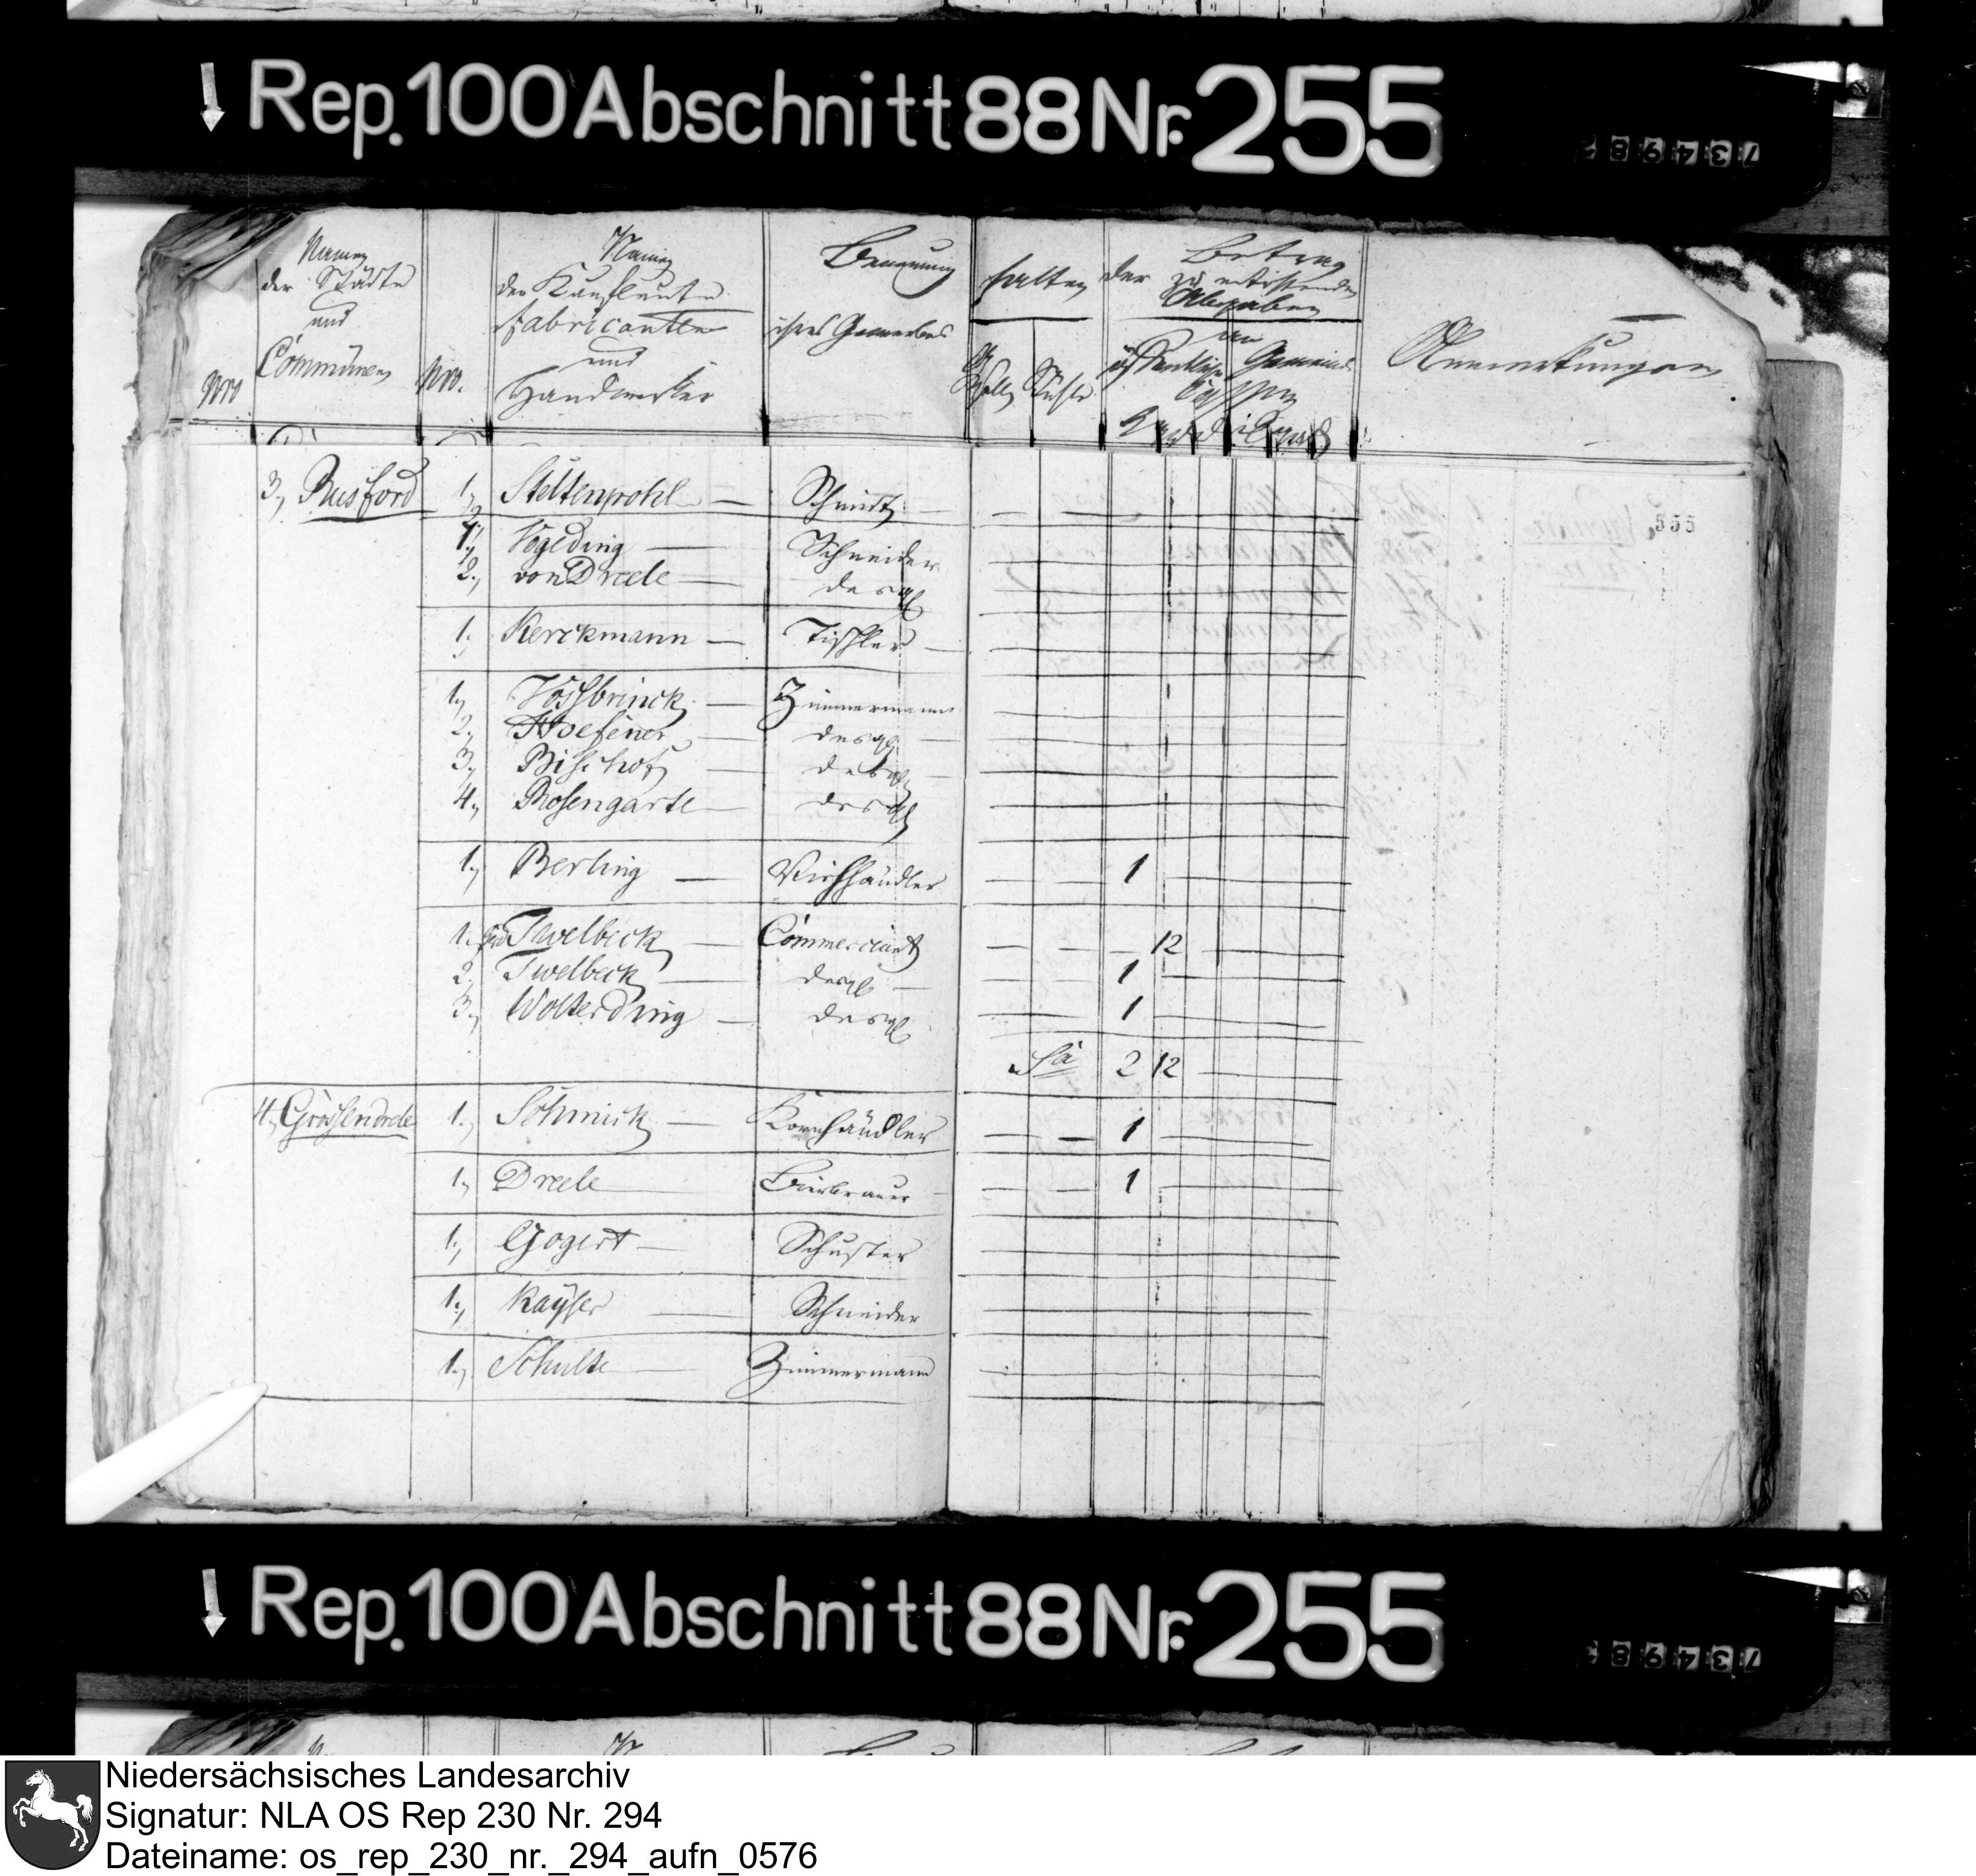 Rep. 100 Abschnitt 88 Nr. 255
734982
Nro
Namen
der Städte
und
Communen
Nro.
Namen
der Kaufleute
Fabricanten
und
Handwerker
Benennung
ihres Gewerbes
halten
Gesellen Stühle
Betrag
der zu entrichtenden
Abgaben
an
öffentliche Gemeinde
Cassen
Anmerkungen
3., Rusford 1, Steltenpohl — Schmidt —
1., Vogeding — Schneider
2., von Dreele — desgl
1., Kerckmann — Tischler —
1, Vossbrinck — Zimmermann
2., Hoefener — desgl —
3., Bischof — desgl —
4., Rosengarte — desgl
1., Berling — Viehhändler — — 1 —
1. Twelbeck — Commerciant — — — 12 —
2, Twelbeck — desgl — — — 1 —
3., Wolterding — desgl — — 1 —
Sa 2 12 —
4., Grossendrele 1., Schmick — Kornhändler — — 1 —
1, Dreele — Bierbrauer — — — 1 —
1., Gogert — Schuster
1., Kayser — Schneider
1., Schulte — Zimmermann
555
Rep. 100 Abschnitt 88 Nr. 255
734982
Niedersächsisches Landesarchiv
Signatur: NLA OS Rep 230 Nr. 294
Dateiname: os_rep_230_nr._294_aufn_0576